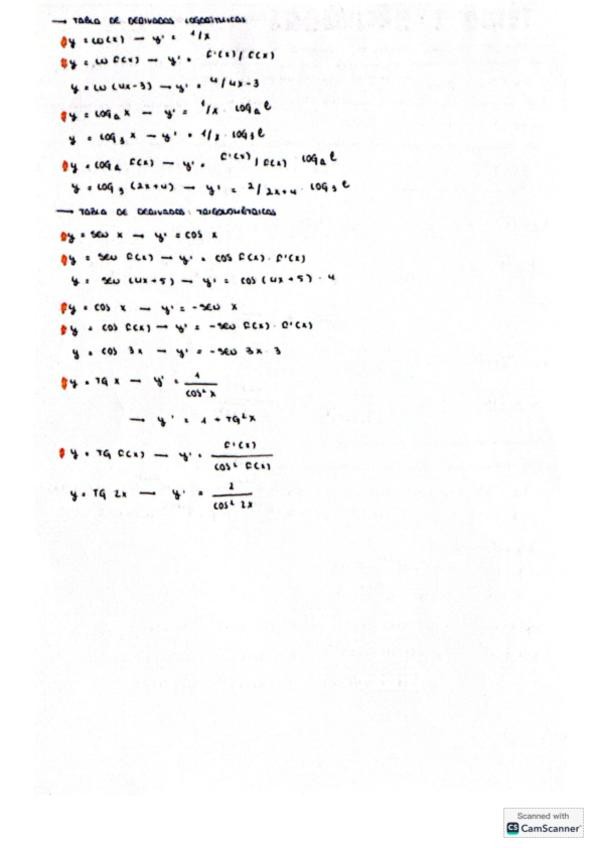 → TABLA DE DERIVADAS LOGARÍTMICAS
y = LN(x) → y' = 1/x
y = LN f(x) → y' = f'(x)/f(x)
y = LN (4x-3) → y' = 4/4x-3
y = LOGₐ x → y' = 1/x · LOGₐ e
y = LOG₃ x → y' = 1/x · LOG₃ e
y = LOGₐ f(x) → y' = f'(x)/f(x) · LOGₐ e
y = LOG₃ (2x+4) → y' = 2/2x+4 · LOG₃ e
→ TABLA DE DERIVADAS TRIGONOMÉTRICAS
y = SEN x → y' = COS x
y = SEN f(x) → y' = COS f(x) · f'(x)
y = SEN (4x+5) → y' = COS (4x+5) · 4
y = COS x → y' = -SEN x
y = COS f(x) → y' = -SEN f(x) · f'(x)
y = COS 3x → y' = -SEN 3x · 3
y = TG x → y' = 1/COS² x
→ y' = 1 + TG² x
y = TG f(x) → y' = f'(x)/COS² f(x)
y = TG 2x → y' = 2/COS² 2x
Scanned with
CS CamScanner